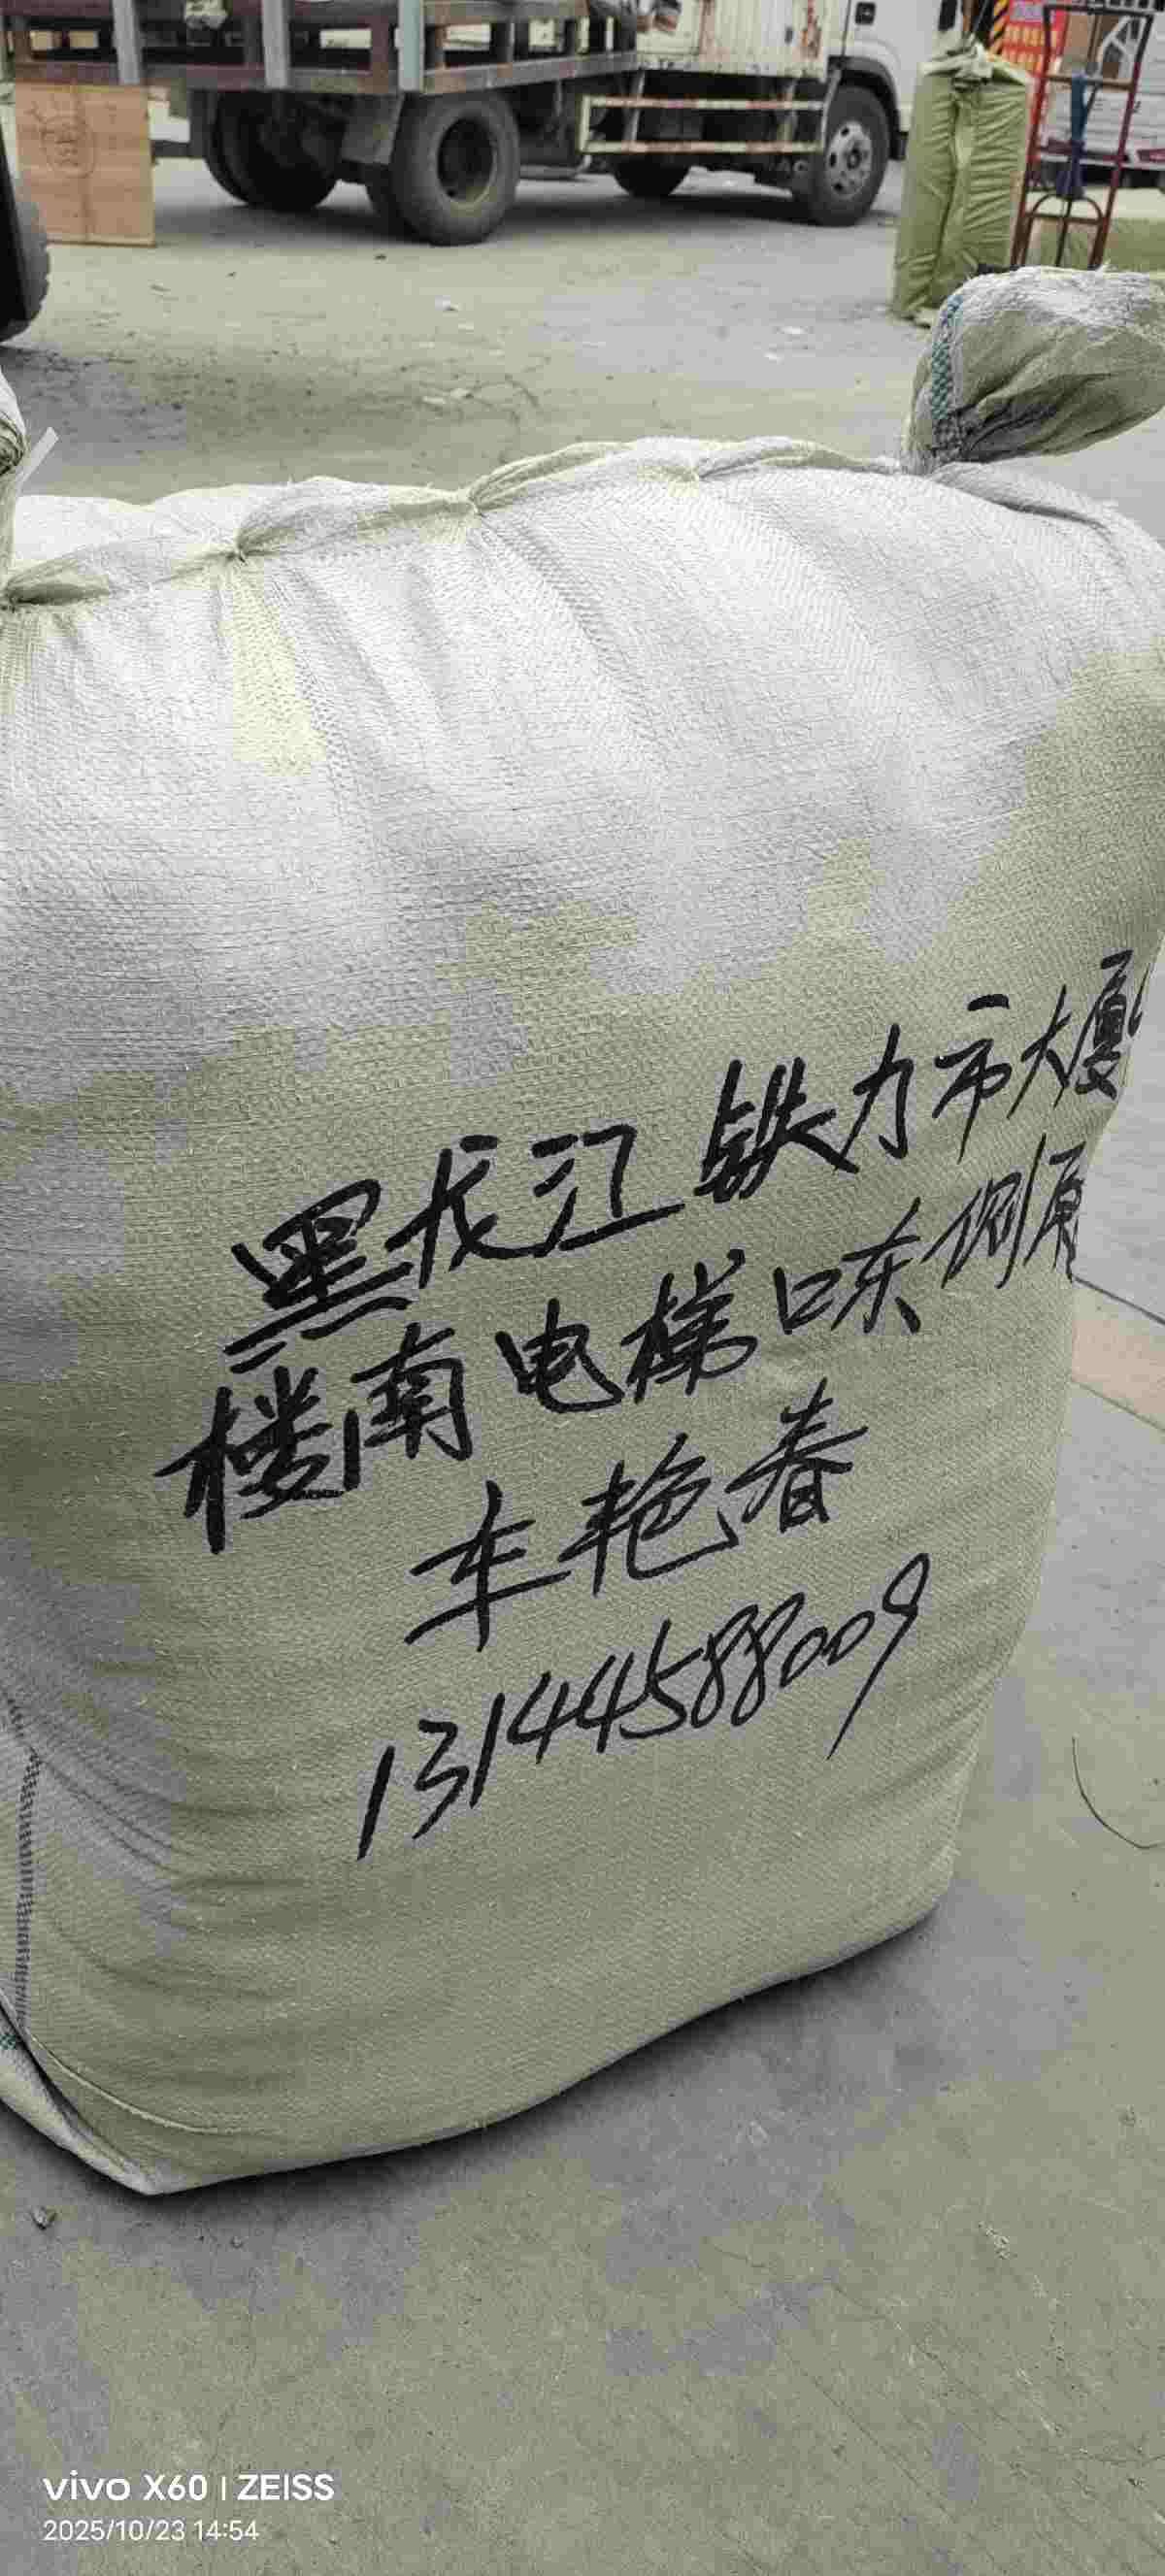 黑龙江 铁力市大厦
楼南电梯口东侧
车艳春
13144588009
vivo X60 | ZEISS
2025/10/23 14:54